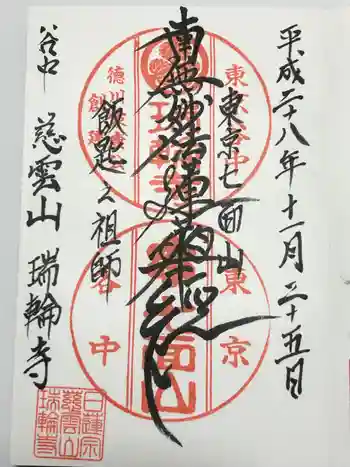 平成二十八年十一月二十五日
東京七面山
南無妙法蓮華経
飯匙之祖師
谷中 慈雲山 瑞輪寺
東京谷中
徳川
創建
東京
谷中
日蓮宗
慈雲山
瑞輪寺